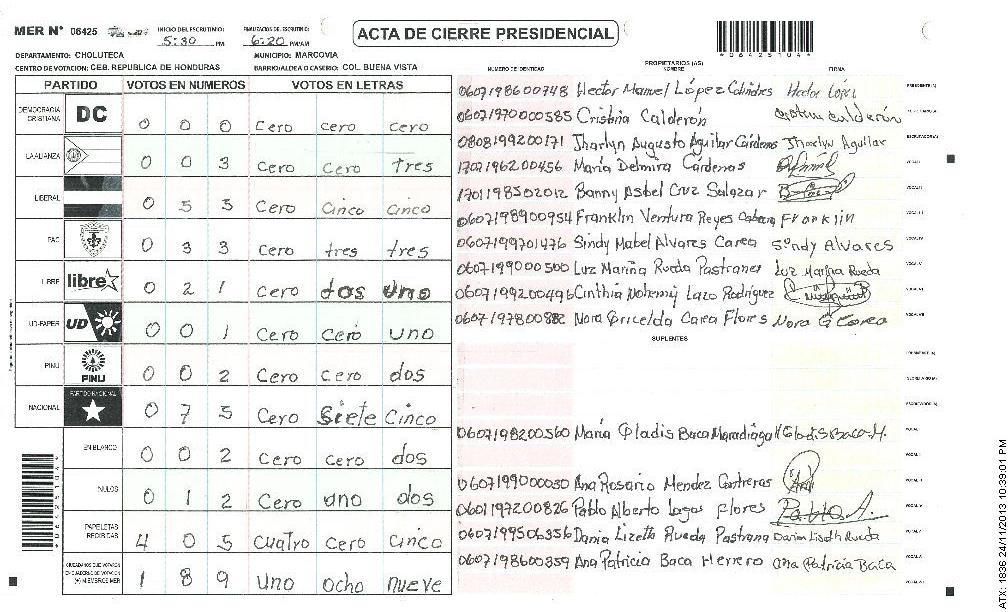 MER N° 06425 INICIO DEL ESCRUTINIO: 5:30 PM FINALIZACION DEL ESCRUTINIO: 6:20 PM/AM ACTA DE CIERRE PRESIDENCIAL *06425104*
DEPARTAMENTO: CHOLUTECA MUNICIPIO: MARCOVIA
CENTRO DE VOTACION: CEB. REPUBLICA DE HONDURAS BARRIO/ALDEA O CASERIO: COL. BUENA VISTA
PARTIDO VOTOS EN NUMEROS VOTOS EN LETRAS
DEMOCRACIA CRISTIANA DC 0 0 0 Cero cero cero
LA ALIANZA 0 0 3 Cero Cero tres
LIBERAL 0 5 5 Cero Cinco Cinco
PAC 0 3 3 Cero tres tres
LIBRE libre 0 2 1 Cero dos uno
UD-FAPER UD 0 0 1 Cero Cero uno
PINU PINU 0 0 2 Cero cero dos
NACIONAL PARTIDO NACIONAL 0 7 5 Cero Siete Cinco
EN BLANCO 0 0 2 Cero Cero dos
NULOS 0 1 2 Cero uno dos
PAPELETAS RECIBIDAS 4 0 5 Cuatro Cero Cinco
CIUDADANOS QUE VOTARON 1 8 9 Uno ocho nueve
PROPIETARIOS (AS)
NUMERO DE IDENTIDAD NOMBRE FIRMA
0607198600748 Hector Manuel López Hector López
0607197000585 Cristina Calderón
0808199200171 Jharlyn Augusto Aguilar Cárdenas Jharlyn Aguilar
1701196200456 Maria Delmira Cárdenas
1701198502012 Banny Asbel Cruz Salazar
0607198900954 Franklin Ventura Reyes Franklin
0607199701476 Sindy Mabel Alvares Carea Sindy Alvares
0607199000500 Luz Marina Rueda Pastrana Luz Marina Rueda
0607199200496 Cinthia Nohemy Lazo Rodriguez
Nora Gricelda Carea Flores
SUPLENTES
0607198200560 Maria Gladis Baca Maradiaga Gladis Baca M.
0607199000050 Ana Rosario Mendez Contreras
0601197200826 Pablo Alberto Lagos Flores Pablo A.
0607199506356 Dania Lizeth Rueda Pastrana Dania Liseth Rueda
0607198600359 Ana Patricia Baca Herrero Ana Patricia Baca
ATX: 1836 24/11/2013 10:39:01 PM